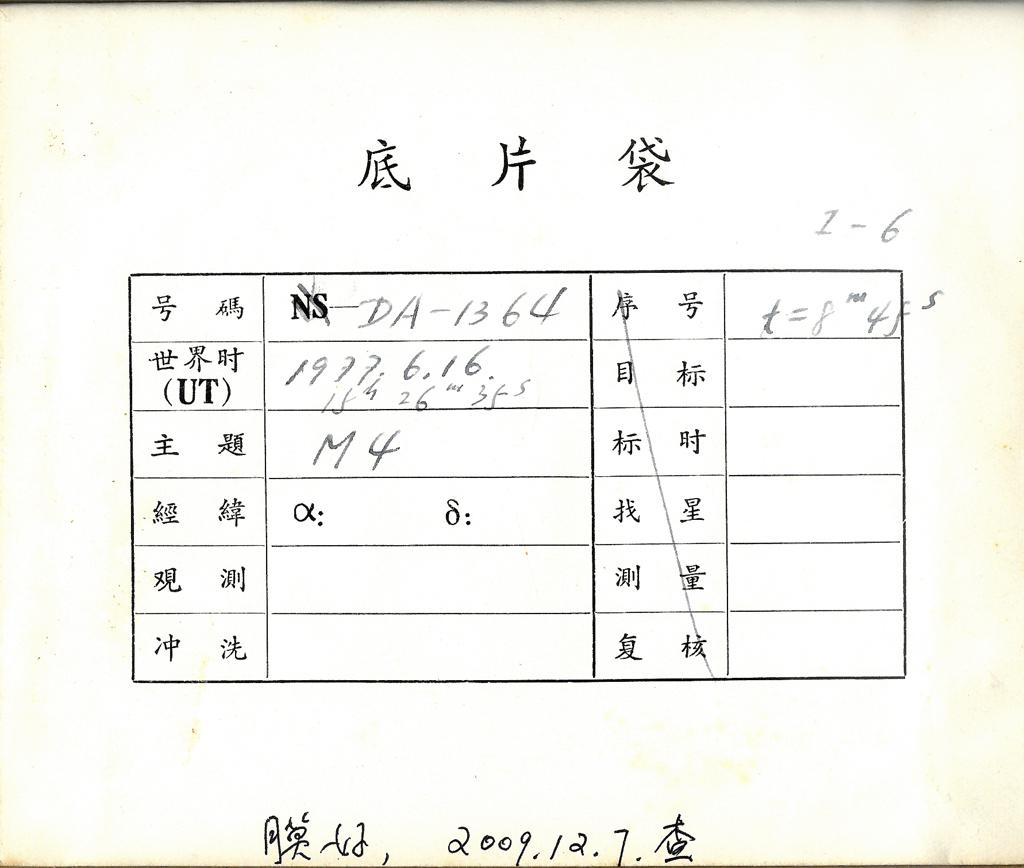 底片袋
I-6
号碼 NS—DA-1364 序号 t=8ᵐ45ˢ
世界时(UT) 1977.6.16. 目标
15ʰ26ᵐ35ˢ
主題 M4 标时
經緯 α: δ: 找星
观測 測量
冲洗 复核
膜好, 2009.12.7.查